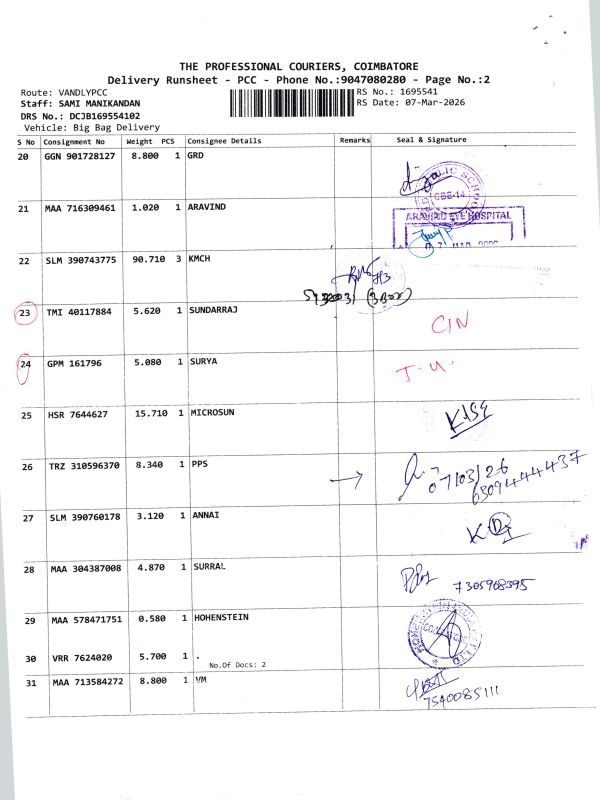 THE PROFESSIONAL COURIERS, COIMBATORE
Delivery Runsheet - PCC - Phone No.:9047080280 - Page No.:2
Route: VANDLYPCC RS No.: 1695541
Staff: SAMI MANIKANDAN RS Date: 07-Mar-2026
DRS No.: DCJB169554102
Vehicle: Big Bag Delivery
S No Consignment No Weight PCS Consignee Details Remarks Seal & Signature
20 GGN 901728127 8.800 1 GRD
PUBLIC SCHOOL
CBE-14
21 MAA 716309461 1.020 1 ARAVIND
ARAVIND EYE HOSPITAL
22 SLM 390743775 90.710 3 KMCH
(3 Box)
23 TMI 40117884 5.620 1 SUNDARRAJ CIN
24 GPM 161796 5.080 1 SURYA I.U.
25 HSR 7644627 15.710 1 MICROSUN
26 TRZ 310596370 8.340 1 PPS → 07/03/26
6309444437
27 SLM 390760178 3.120 1 ANNAI
28 MAA 304387008 4.870 1 SURRAL
7305968395
29 MAA 578471751 0.580 1 HOHENSTEIN
30 VRR 7624020 5.700 1 .
No.Of Docs: 2
31 MAA 713584272 8.800 1 VM
7540085111